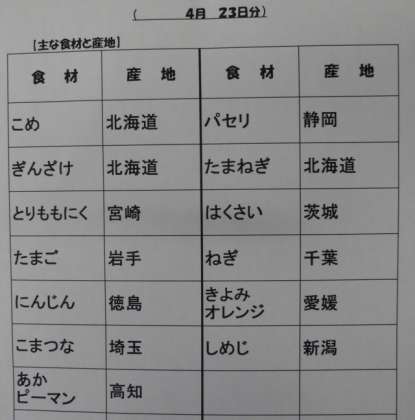 ( 4月 23日分)
[主な食材と産地]
食 材 産 地 食 材 産 地
こめ 北海道 パセリ 静岡
ぎんざけ 北海道 たまねぎ 北海道
とりももにく 宮崎 はくさい 茨城
たまご 岩手 ねぎ 千葉
にんじん 徳島 きよみ
オレンジ 愛媛
こまつな 埼玉 しめじ 新潟
あか
ピーマン 高知